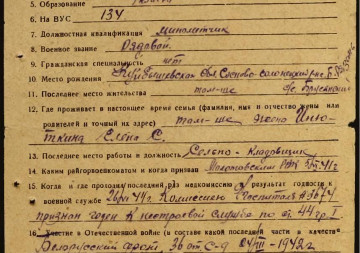 5. Образование
6. На ВУС 134
7. Должностная квалификация минометчик
8. Военное звание Рядовой
9. Гражданская специальность нет
10. Место рождения Куйбышевская обл. Сосново-Солонецкий р-н
11. Последнее место жительства там-же
12. Где проживает в настоящее время семья (фамилия, имя и отчество жены или
родителей и точный их адрес) там-же, жена
Елена С.
13. Последнее место работы и должность Сельпо - Кладовщик
14. Каким райгорвоенкоматом и когда призван
15. Когда и где проходил последний раз медкомиссию и результат годности к
военной службе 44г. Комиссией Госпиталя
признан годен к нестроевой службе по ст. 44 гр. I
16. Участие в Отечественной войне (в составе какой последней части и в качестве
Белорусский фронт 1942г